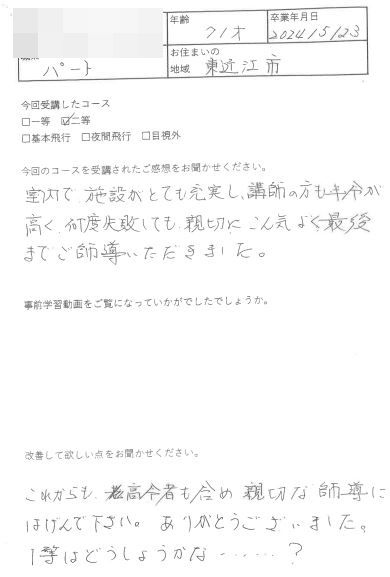 年齢 卒業年月日
71才 2024/5/23
職業 お住まいの
パート 地域 東近江市
今回受講したコース
□一等 ☑二等
□基本飛行 □夜間飛行 □目視外
今回のコースを受講されたご感想をお聞かせください。
室内で、施設がとても充実し、講師の方も年令が
高く、何度失敗しても、親切にこん気よく最後
までご師導いただきました。
事前学習動画をご覧になっていかがでしたでしょうか。
改善して欲しい点をお聞かせください。
これからも、高令者も含め親切な師導に
はげんで下さい。ありがとうございました。
1等はどうしょうかな・・・・・・?